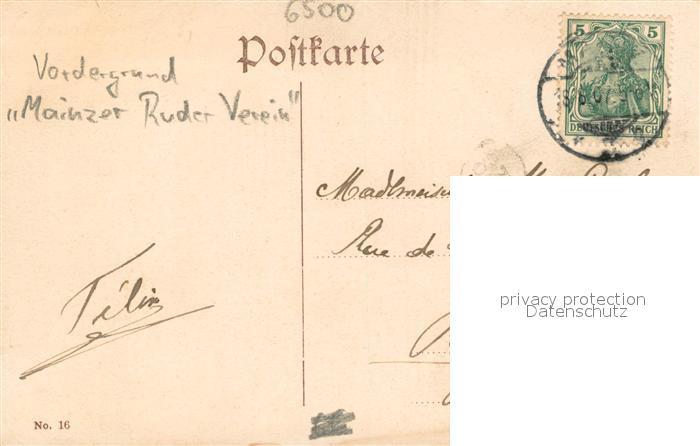 6500
Postkarte
5 5
DEUTSCHES REICH
Vordergrund
„Mainzer Ruder Verein"
Rue de
Félix
privacy protection
Datenschutz
No. 16